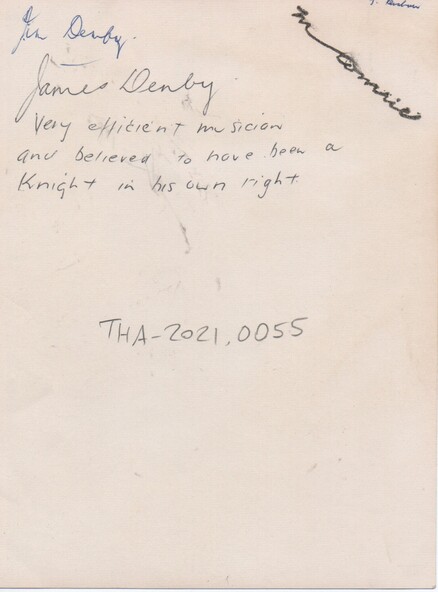 Jim Denby.
James Denby
Very efficient musician
and believed to have been a
Knight in his own right.
THA-2021.0055